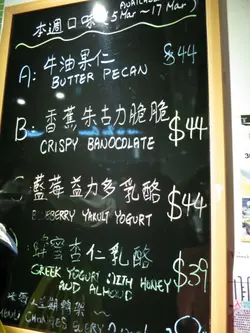 本週口味
5 Mar - 17 Mar)
A: 牛油果仁 $44
BUTTER PECAN
B: 香蕉朱古力脆脆 $44
CRISPY BANOCOLATE
藍莓益力多乳酪 $44
BLUEBERRY YAKULT YOGURT
蜂蜜杏仁乳酪 $39
GREEK YOGURT WITH HONEY
AND ALMOND